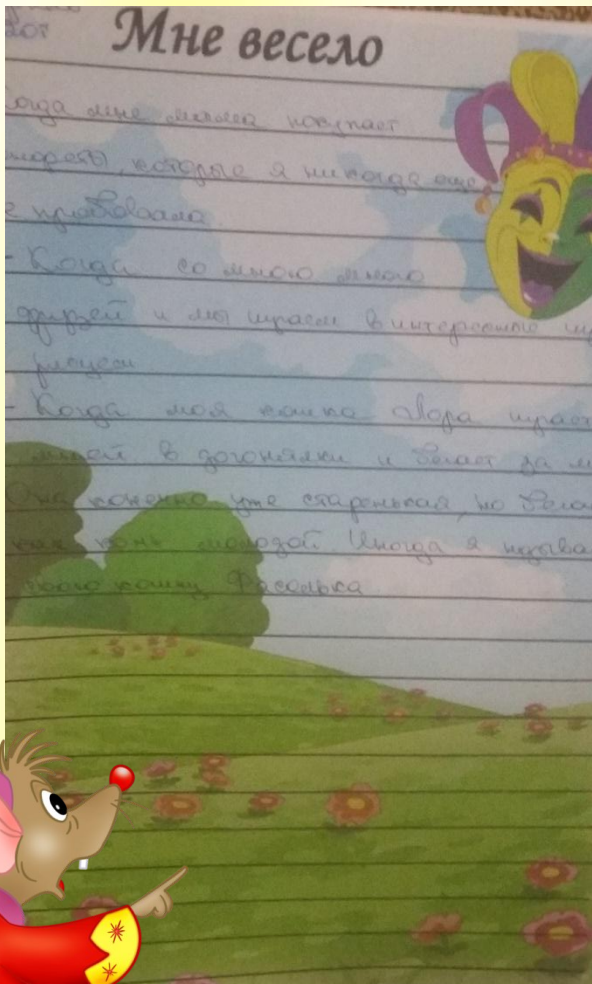 Мне весело
Когда мне мама покупает
конфеты, которые я никогда еще
не пробовала.
- Когда со мною много
друзей и мы играем в интересные
рисуем
- Когда моя кошка играет
мной в догонялки и бегает за
Она конечно уже старенькая, но
как конь молодой. Иногда я
свою кошку Фасолька.